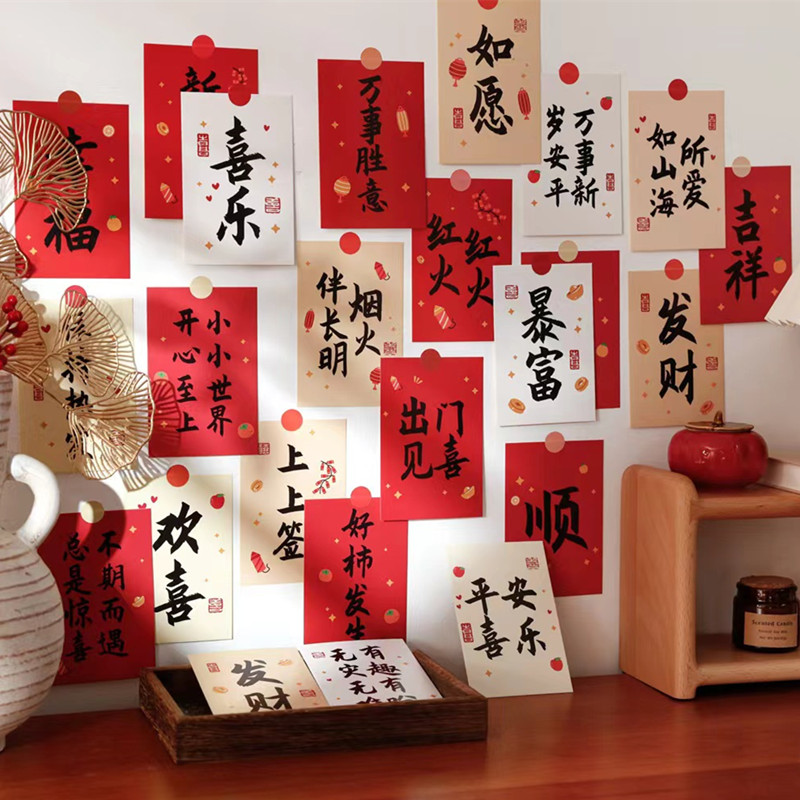 幸福
新
喜乐
万事胜意
如愿
万事新
岁安平
所爱
如山海
吉祥
红火
红火
烟火
伴长明
暴富
发财
小小世界
开心至上
出门
见喜
上上签
好柿发生
顺
欢喜
不期而遇
总是惊喜
平安
喜乐
发财
有趣有
无灾无
Scented Candle